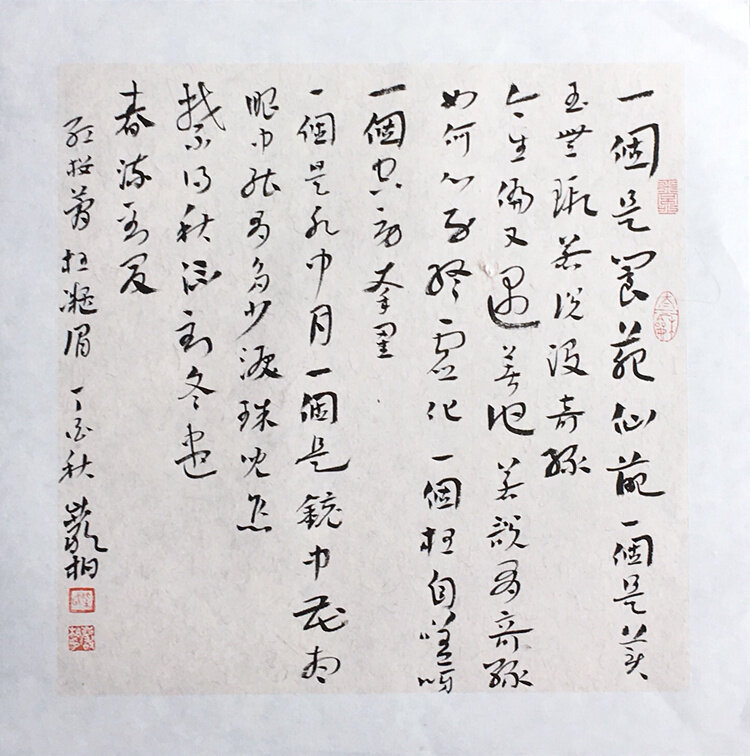 一個是閬苑仙葩一個是美
玉無瑕若说没奇緣
今生偏又遇着他若説有奇緣
如何心事終虛化一個枉自嗟呀
一個空勞牽罣
一個是水中月一個是鏡中花想
眼中能有多少淚珠兒怎
禁得秋流到冬盡
春流到夏
紅楼夢 枉凝眉 丁酉秋